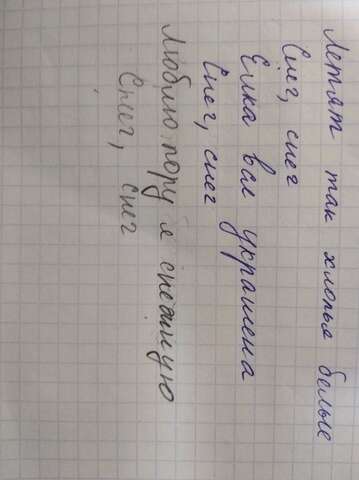 Летят так хлопья белые
Снег, снег
Елка вся украшена
Снег, снег
Люблю пору я снежную
Снег, снег